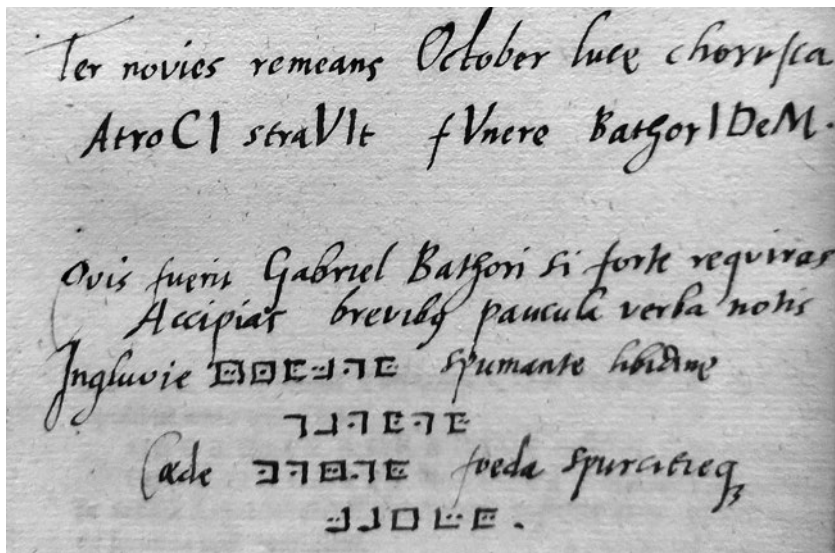 Ter novies remeans October lucę chorusca
AtroCI straVIt fVnere BathorIDeM.
Qvis fuerit Gabriel Bathori si forte requiras
Accipias brevibꝫ paucula verba notis
Ingluvie spumante libidinę
Cæde foeda spurcitieqꝫ